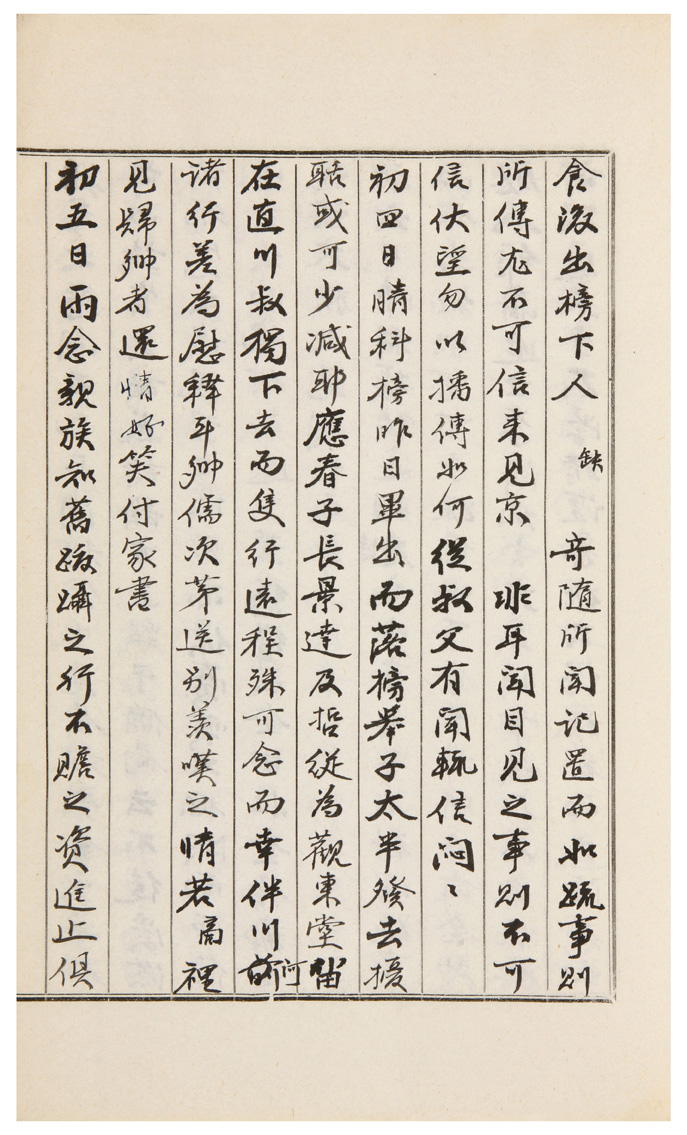 食後出榜下人 缺 奇隨所聞記置而如疏事則
所傳尤不可信来見京 非耳聞目見之事則不可
信伏望勿以播傳如何從叔父有聞輒信悶〻
初四日晴科榜昨日畢出而落榜擧子太半發去擾
聒或可少减耶應春子長景達及哲從為觀東堂留
在直川叔獨下去而隻行遠程殊可念而幸伴川前河
诸行差為慰釋耳鄉儒次苐送别羡嘆之情若商裡
見歸鄉者還情好笑付家書
初五日雨念親族知舊跋躡之行不贍之資進止俱